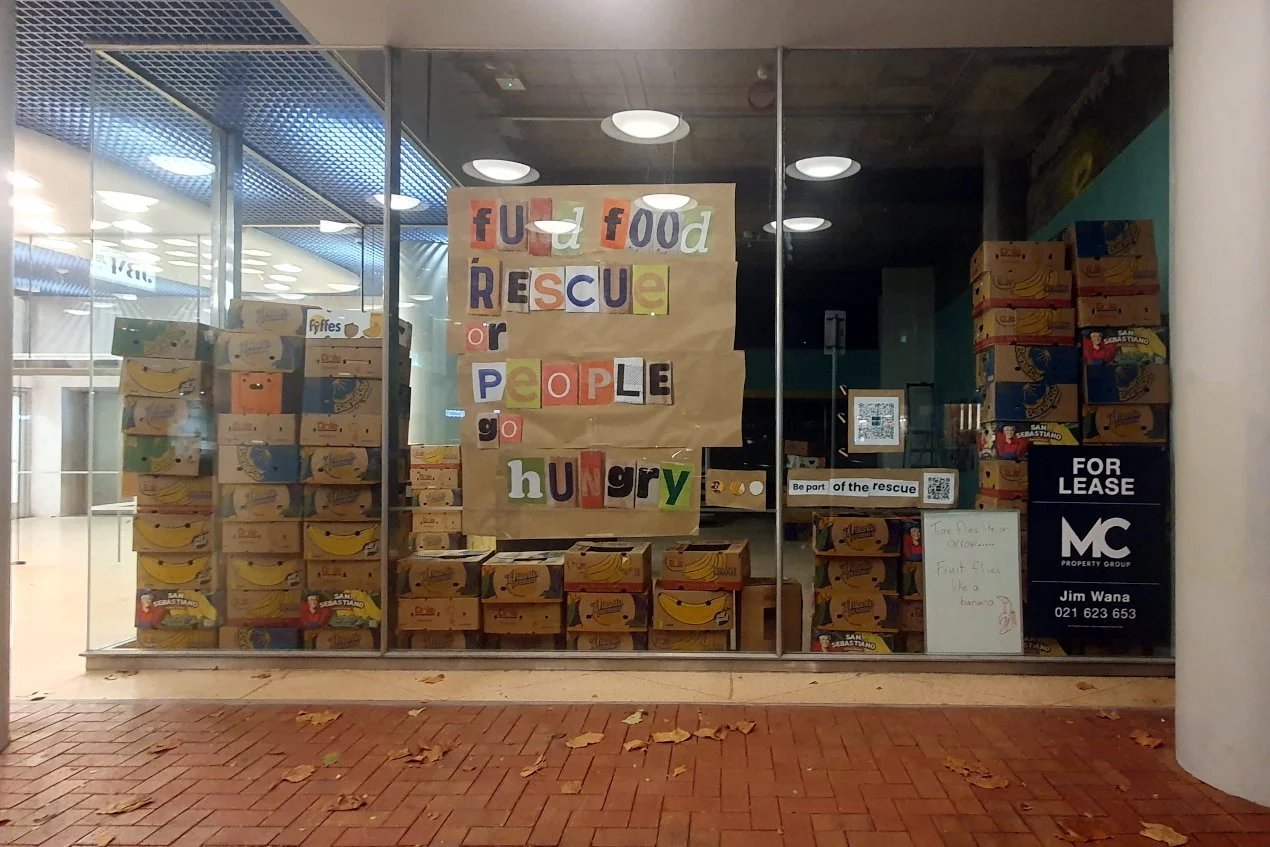 fUNd food
RESCUE
or
PEOPLE
go
hUNgry
fyffes
Be part of the rescue
Time flies like an
arrow......
Fruit flies
like a
banana
FOR
LEASE
MC
PROPERTY GROUP
Jim Wana
021 623 653
SAN
SEBASTIANO
SAN
SEBASTIANO
SAN
SEBASTIANO
SAN
SEBASTIANO
SAN
SEBASTIANO
Dole
Dole
Dole
Dole